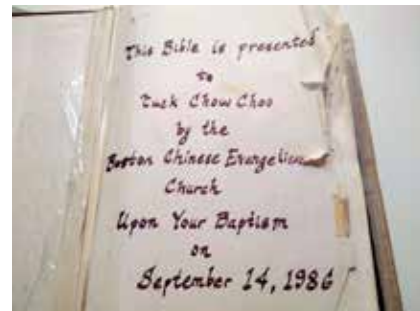 This Bible is presented
to
Tuck Chow Choo
by the
Boston Chinese Evangelical
Church
Upon Your Baptism
on
September 14, 1986